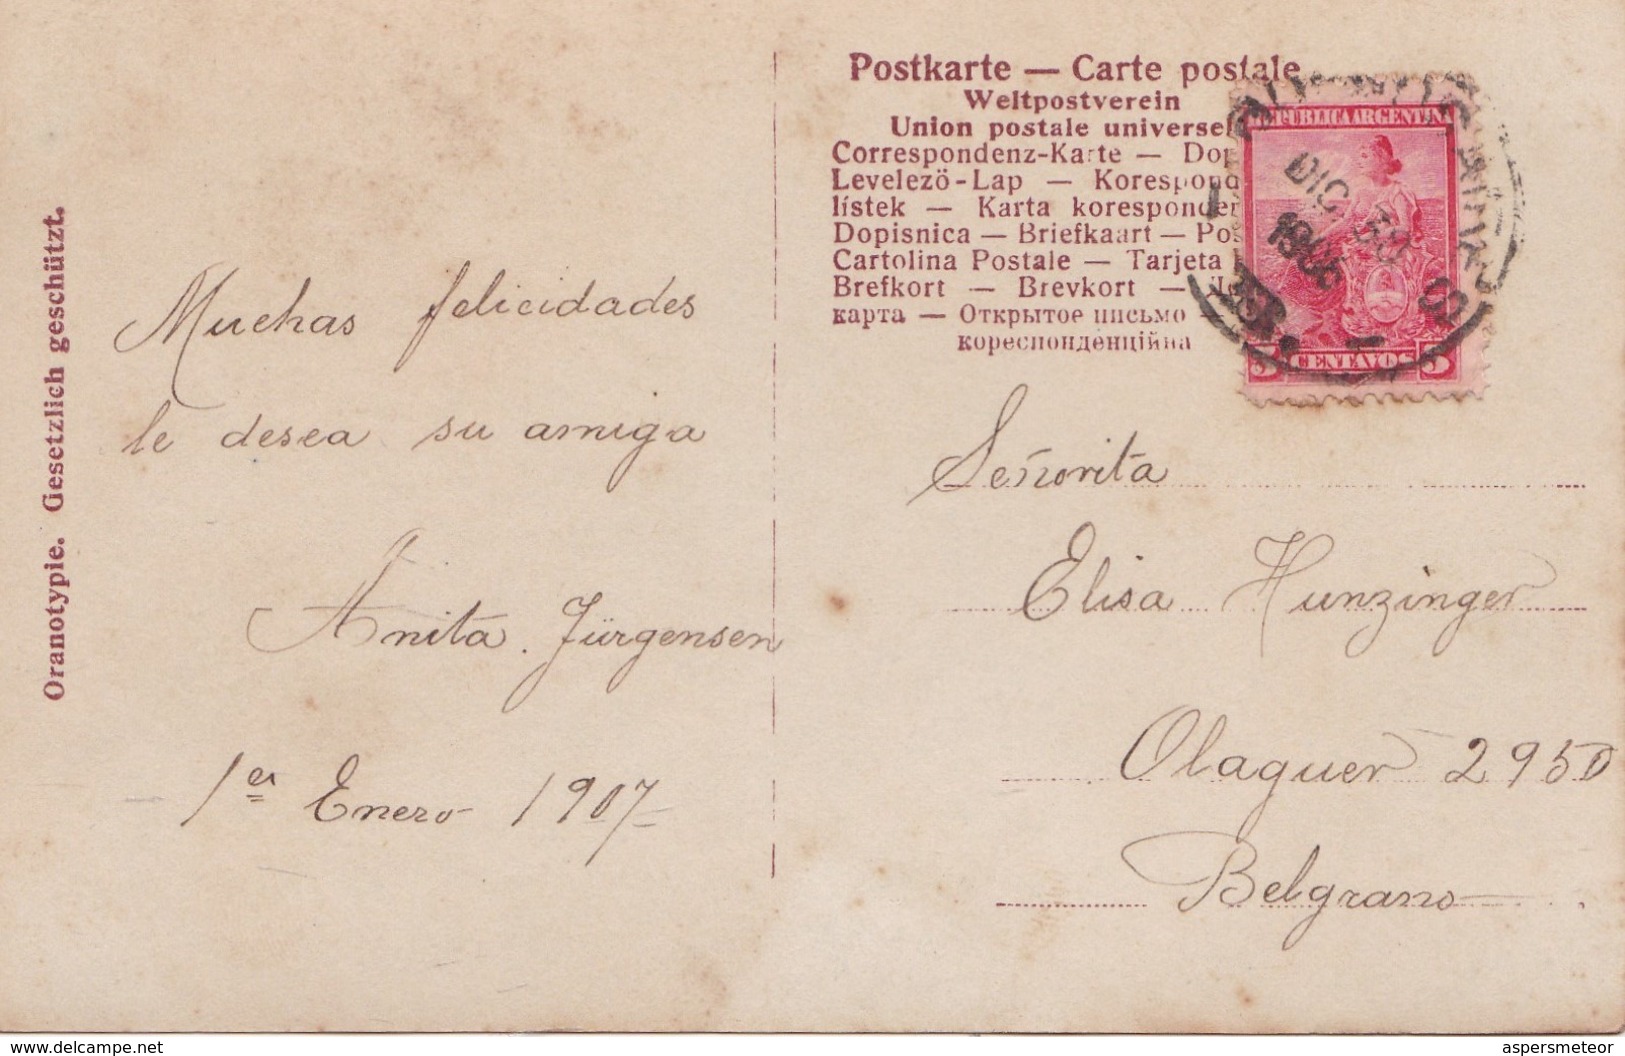 Oranotypie. Gesetzlich geschützt.
Muchas felicidades
le desea su amiga
Anita Jürgensen
1er Enero 1907
Postkarte — Carte postale
Weltpostverein
Union postale universel
Correspondenz-Karte — Dop
Levelezö-Lap — Korespond
lístek — Karta koresponden
Dopisnica — Briefkaart — Pos
Cartolina Postale — Tarjeta
Brefkort — Brevkort —
карта — Открытое письмо —
кореспонденційна
REPUBLICA ARGENTINA
DIC 30
1906
5 CENTAVOS 5
Señorita
Elisa Hunzinger
Olaguer 2950
Belgrano
www.delcampe.net
aspersmeteor